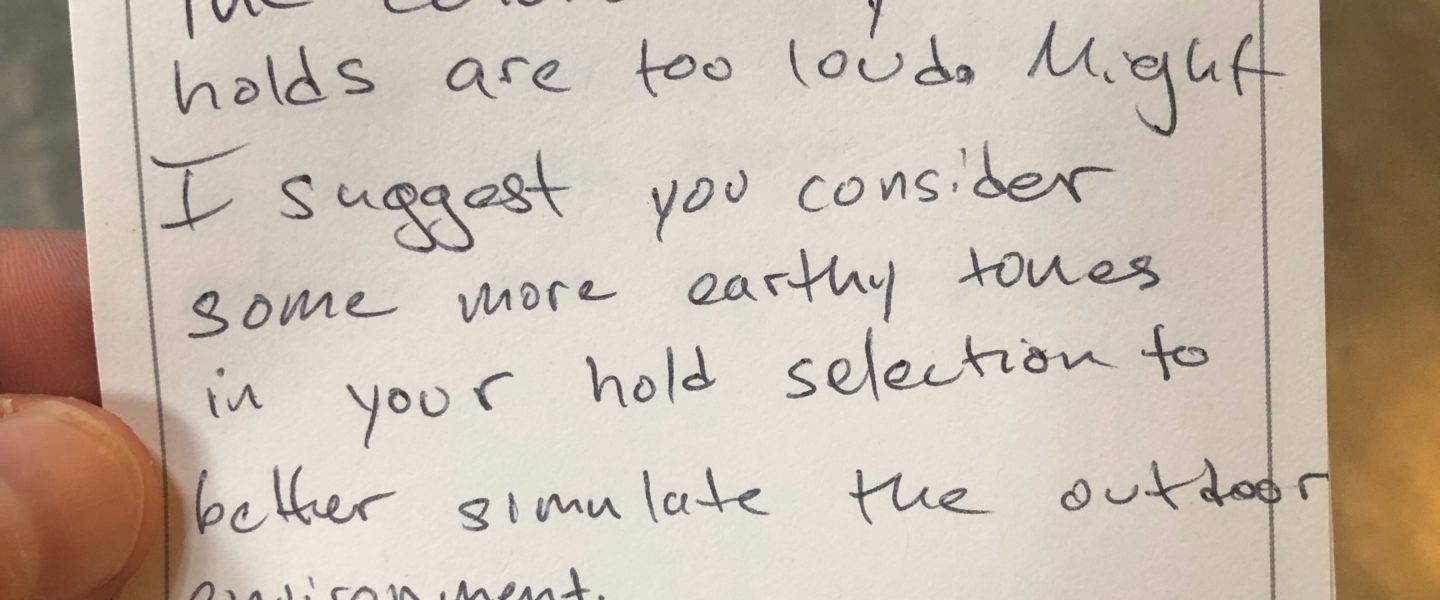 holds are too loud. Might
I suggest you consider
some more earthy tones
in your hold selection to
better simulate the outdoor
environment.